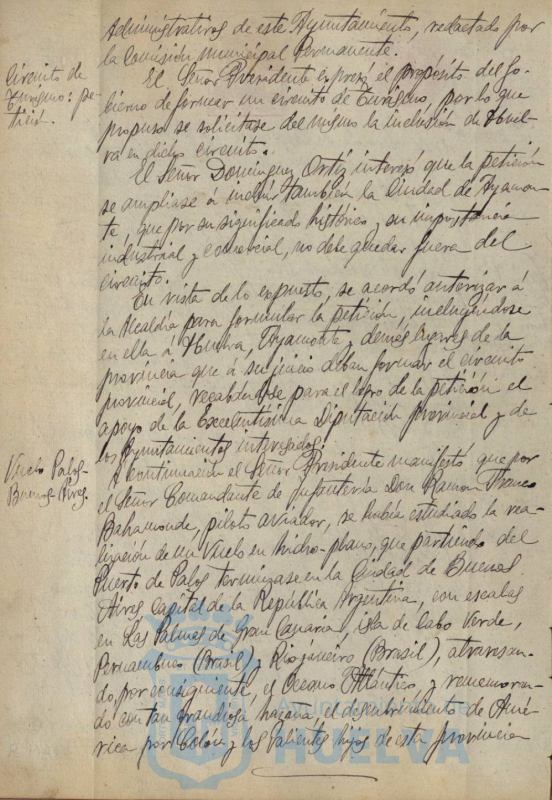 Administrativos de este Ayuntamiento, redactado por
la Comisión Municipal Permanente.
Circuito de
Turismo: pe-
tición.
El Señor Presidente expresó el propósito del Go-
bierno de formar un circuito de Turismo, por lo que
propuso se solicitase del mismo la inclusión de Huel-
va en dicho circuito.
El Señor Domínguez Ortiz interesó que la petición
se ampliase á incluir también la Ciudad de Ayamon-
te, que por su significado histórico, su importancia
industrial y comercial, no debe quedar fuera del
circuito.
En vista de lo expuesto, se acordó autorizar á
la Alcaldía para formular la petición, incluyéndose
en ella á Huelva, Ayamonte y demás lugares de la
provincia que á su juicio deban formar el circuito
provincial, recabándose para el logro de la petición el
apoyo de la Excelentísima Diputación provincial y de
los Ayuntamientos interesados.
Vuelo Palos-
Buenos Aires.
A continuación el Señor Presidente manifestó que por
el Señor Comandante de Infantería Don Ramón Franco
Bahamonde, piloto aviador, se había estudiado la rea-
lización de un vuelo en hidro-plano, que partiendo del
Puerto de Palos terminase en la Ciudad de Buenos
Aires Capital de la República Argentina, con escalas
en Las Palmas de Gran Canaria, isla de Cabo Verde,
Pernambuco (Brasil) y Rio janeiro (Brasil), atravesan-
do, por consiguiente, el Oceano Atlántico, y rememoran-
do con tan grandiosa hazaña, el descubrimiento de Amé-
rica por Colón y los valientes hijos de esta provincia
HUELVA